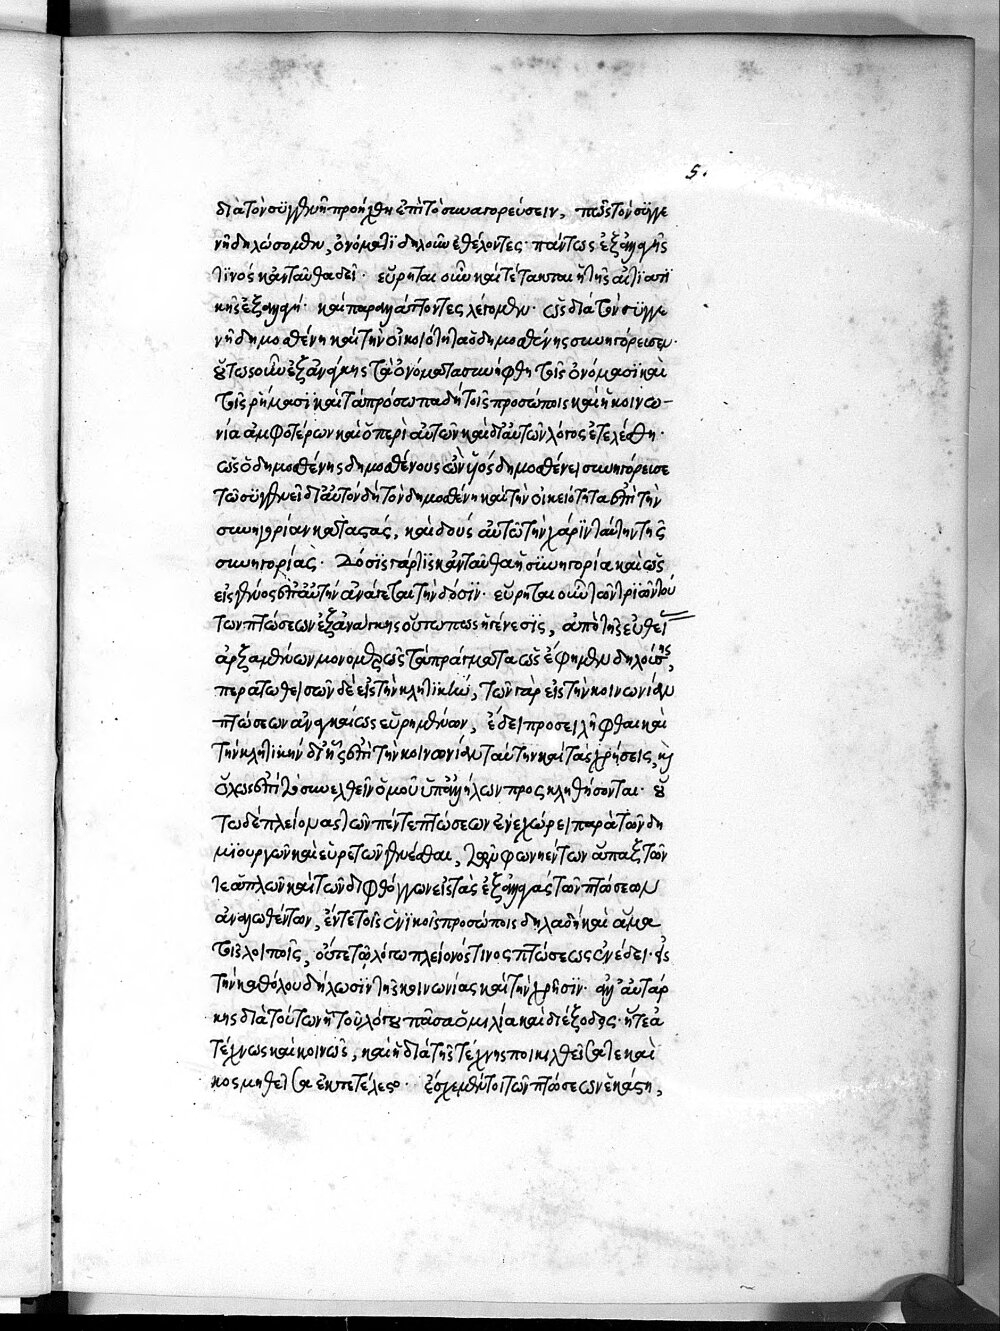 5.
διὰ τὸν συγγενῆ προήχθη ἐπὶ τὸ συναγορεύσειν, πῶς τὸν συγγε
νῆ δηλώσομεν, ὀνόματι δηλοῦν ἐθέλοντες· πάντως ἐξαλλαγῆς
τινὸς κἀνταῦθα δεῖ· εὕρηται οὖν καὶ τέτακται ἡ τῆς αἰτιατι
κῆς ἐξαλλαγή· καὶ παραγαγόντες λέγομεν· ὡς διὰ τὸν συγγε
νῆ δημοσθένη καὶ τὴν οἰκειότητα ὁ δημοσθένης συνηγόρησεν·
οὕτως οὖν ἐξ ἀνάγκης τὰ ὀνόματα συνήφθη τοῖς ὀνόμασι καὶ
τοῖς ῥήμασι καὶ τὰ πρόσωπα δὴ τοῖς προσώποις καὶ ἡ κοινω-
νία ἀμφοτέρων καὶ ὁ περὶ αὐτῶν καὶ δι' αὐτῶν λόγος ἐτελέσθη·
ὡς ὁ δημοσθένης δημοσθένους ὢν υἱὸς δημοσθένει συνηγόρησε
τῷ συγγενεῖ δι' αὐτὸν δὴ τὸν δημοσθένη καὶ τὴν οἰκειότητα ἐπὶ τὴν
συνηγορίαν καταστὰς, καὶ δοὺς αὐτῷ τὴν χάριν ταύτην τῆς
συνηγορίας· δόσις γάρ τις κἀνταῦθα ἡ συνηγορία καὶ ὡς
εἰς γένος ἐπ' αὐτὴν ἀνάγεται τὴν δόσιν· εὕρηται οὖν τῶν τριῶν τού
των πτώσεων ἐξ ἀνάγκης οὕτω πως ἡ γένεσις, ἀπὸ τῆς εὐθεί
ας
ἀρξαμένων μονομερῶς τὰ πράγματα ὡς ἔφημεν δηλούσης,
περατωθεισῶν δὲ εἰς τὴν κλητικὴν, τῶν γὰρ εἰς τὴν κοινωνίαν
πτώσεων ἀναγκαίως εὑρημένων, ἔδει προσειλῆφθαι καὶ
τὴν κλητικὴν δι' ἧς ἐπὶ τὴν κοινωνίαν ταύτην καὶ τὰς χρήσεις, καὶ
ὅλως ἐπὶ τὸ συνελθεῖν ὁμοῦ ὑπ' ἀλλήλων προσκληθήσονται· οὕ
τω δὲ πλείονας τῶν πέντε πτώσεων ἐνεχώρει παρὰ τῶν δη
μιουργῶν καὶ εὑρετῶν γενέσθαι, τῶν φωνηέντων ἅπαξ τῶν
τε ἁπλῶν καὶ τῶν διφθόγγων εἰς τὰς ἐξαλλαγὰς τῶν πτώσεων
ἀναλωθέντων, ἔν τε τοῖς ἑνικοῖς προσώποις δηλαδὴ καὶ ἅμα
τοῖς λοιποῖς, οὔτε τῷ λόγῳ πλείονός τινος πτώσεως ἐνέδει· εἰς
τὴν καθόλου δήλωσιν τῆς κοινωνίας καὶ τὴν χρῆσιν· ἀλλ' αὐτάρ
κης διὰ τούτων ἡ τοῦ λόγου πᾶσα ὁμιλία καὶ διέξοδος· ἥ τε ἀ
τέχνως καὶ κοινῶς, καὶ ἡ διὰ τῆς τέχνης ποικιλθεῖσά τε καὶ
κοσμηθεῖσα ἐκτετέλεσται· ἔσχε μέντοι τῶν πτώσεων ἑκάστη,